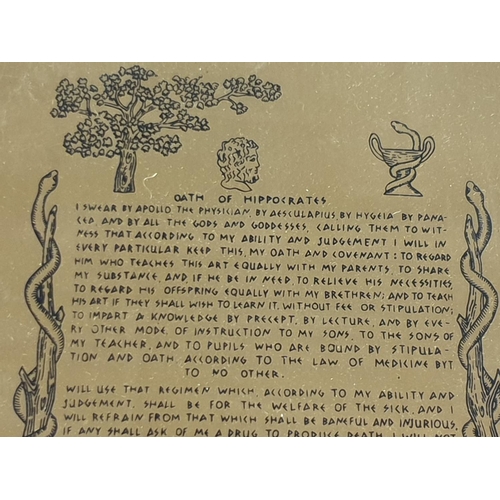 OATH OF HIPPOCRATES
I SWEAR BY APOLLO THE PHYSICIAN, BY AESCULAPIUS, BY HYGEIA BY PANA-
CEA, AND BY ALL THE GODS AND GODDESSES, CALLING THEM TO WIT-
NESS THAT ACCORDING TO MY ABILITY AND JUDGEMENT I WILL IN
EVERY PARTICULAR KEEP THIS, MY OATH AND COVENANT: TO REGARD
HIM WHO TEACHES THIS ART EQUALLY WITH MY PARENTS, TO SHARE
MY SUBSTANCE, AND IF HE BE IN NEED, TO RELIEVE HIS NECESSITIES,
TO REGARD HIS OFFSPRING EQUALLY WITH MY BRETHREN; AND TO TEACH
HIS ART IF THEY SHALL WISH TO LEARN IT, WITHOUT FEE OR STIPULATION;
TO IMPART A KNOWLEDGE BY PRECEPT, BY LECTURE, AND BY EVE-
RY OTHER MODE, OF INSTRUCTION TO MY SONS, TO THE SONS OF
MY TEACHER, AND TO PUPILS WHO ARE BOUND BY STIPULA-
TION AND OATH, ACCORDING TO THE LAW OF MEDICINE BYT
TO NO OTHER.
WILL USE THAT REGIMEN WHICH, ACCORDING TO MY ABILITY AND
JUDGEMENT, SHALL BE FOR THE WELFARE OF THE SICK, AND I
WILL REFRAIN FROM THAT WHICH SHALL BE BANEFUL AND INJURIOUS.
IF ANY SHALL ASK OF ME A DRUG TO PRODUCE DEATH I WILL NOT